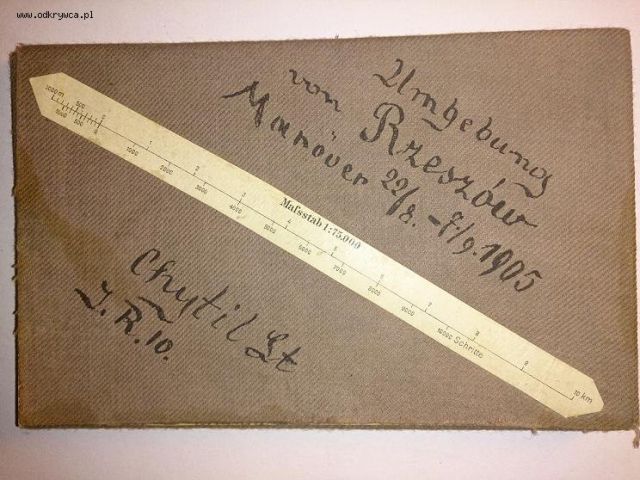 www.odkrywca.pl
Umgebung
von Rzeszów
Manöver 22/8.-7/9.1905
1000 m 500 0 1 2 3 4 5 6 7 8 9 10 km
Maßstab 1:75.000
1000 500 0 1000 2000 3000 4000 5000 6000 7000 8000 9000 10000 Schritte
Chytil Lt
I.R.10.